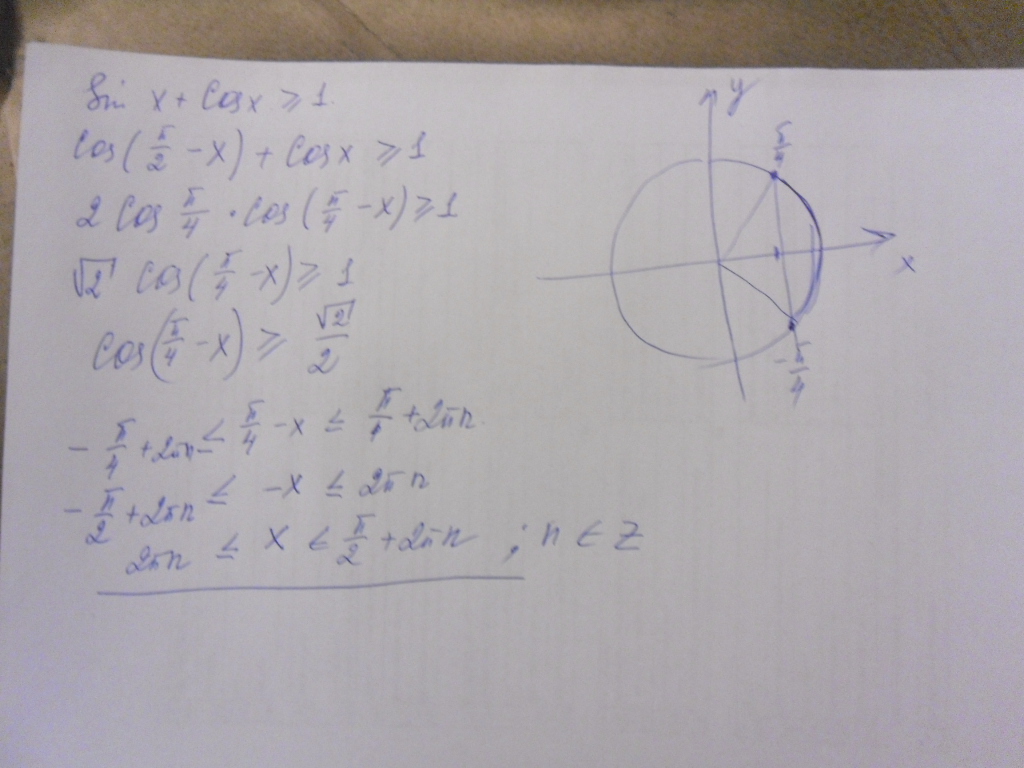 Sin x + Cos x ≥ 1
Cos(π/2 - x) + Cos x ≥ 1
2 Cos π/4 · Cos(π/4 - x) ≥ 1
√2 Cos(π/4 - x) ≥ 1
Cos(π/4 - x) ≥ √2/2
- π/4 + 2πn ≤ π/4 - x ≤ π/4 + 2πn
- π/2 + 2πn ≤ -x ≤ 2πn
2πn ≤ x ≤ π/2 + 2πn ; n ∈ Z
y
π/4
x
- π/4